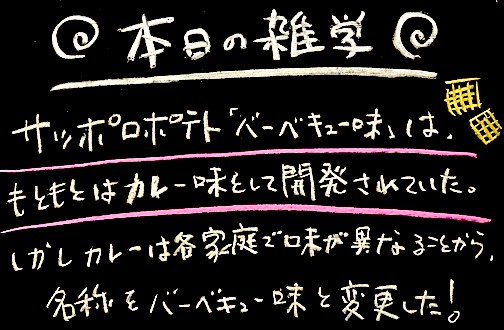 本日の雑学
サッポロポテト「バーベキュー味」は、
もともとはカレー味として開発されていた。
しかしカレーは各家庭で味が異なることから、
名称をバーベキュー味と変更した!